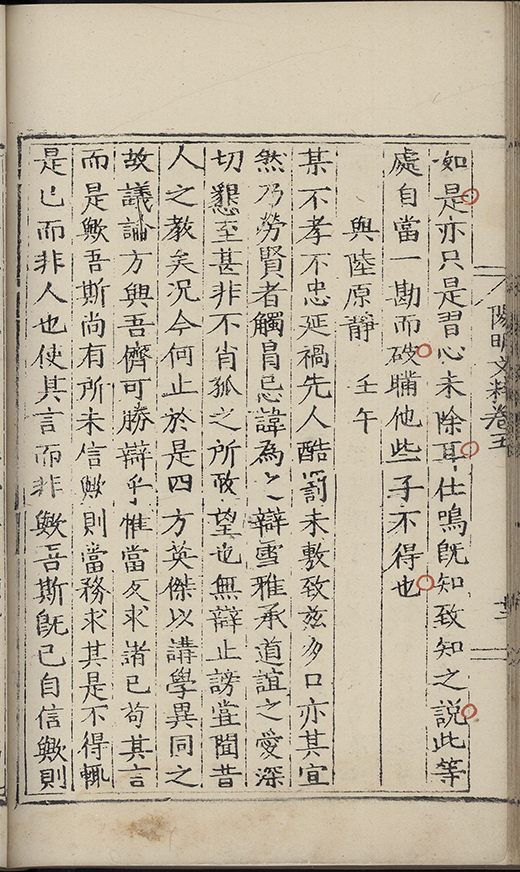 陽明文粹卷五
如是亦只是習心未除耳仕鳴旣知致知之說此等
處自當一勘而破瞞他些子不得也
與陸原靜 壬午
某不孝不忠延禍先人酷罰未敷致茲多口亦其宜
然乃勞賢者觸冐忌諱為之辯雪雅承道誼之愛深
切懇至甚非不肖孤之所敢望也無辯止謗甞聞昔
人之教矣况今何止於是四方英傑以講學異同之
故議論方興吾儕可勝辯乎惟當反求諸己苟其言
而是歟吾斯尚有所未信歟則當務求其是不得輒
是己而非人也使其言而非歟吾斯旣已自信歟則